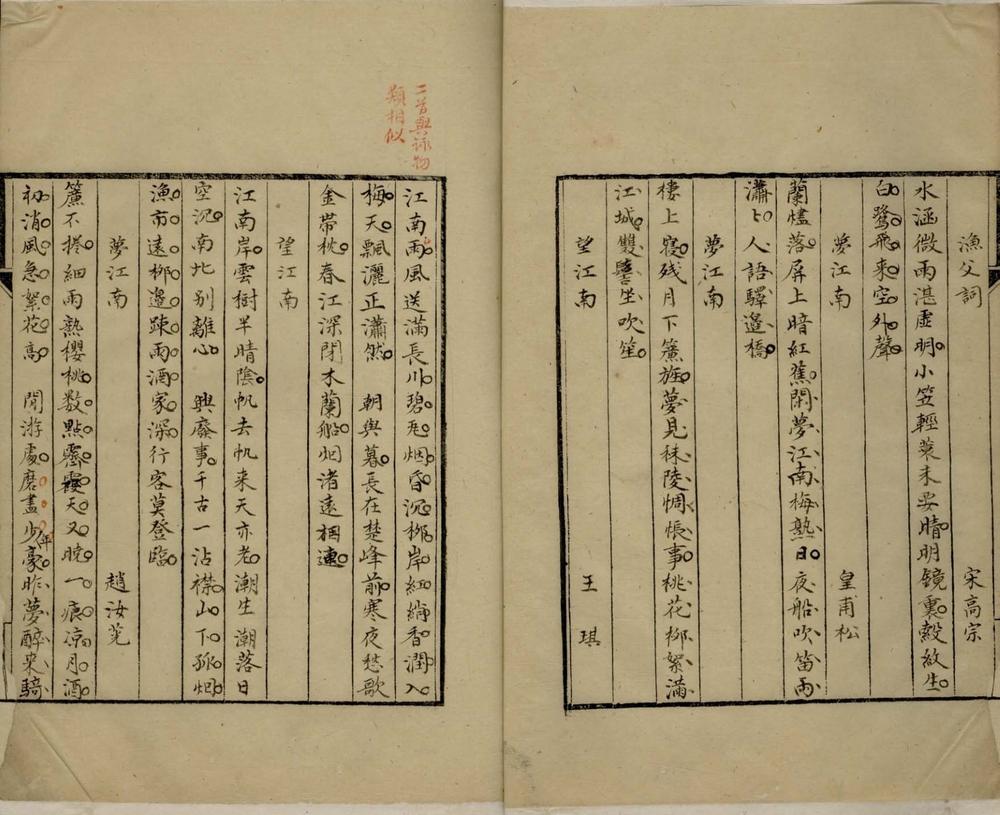 漁父詞　宋高宗
水涵微雨湛虛明小笠輕蓑未要晴明鏡裏縠紋生
白鷺飛来空外聲
夢江南　皇甫松
蘭燼落屏上暗紅蕉閑夢江南梅熟日夜船吹笛雨
瀟〻人語驛邊橋
夢江南
樓上寢残月下簾旌夢見秣陵惆悵事桃花栁絮滿
江城雙髻坐吹笙
望江南　王琪
二首與詠物
類相似
江南雨風送滿長川碧瓦烟昏沉栁岸紅綃香潤入
梅天飄灑正瀟然　朝與暮長在楚峰前寒夜愁歌
金帶枕春江深閉木蘭船烟渚遠相連
望江南
江南岸雲樹半晴陰帆去帆来天亦老潮生潮落日
空沉南北别離心　興廢事千古一沾襟山下孤烟
漁市遠栁邊踈雨酒家深行客莫登臨
夢江南　趙汝茪
簾不捲細雨熟櫻桃数點霽霞天又曉一痕凉月酒
初消風急絮花高　閒游處磨盡少年豪昨夢醉来騎